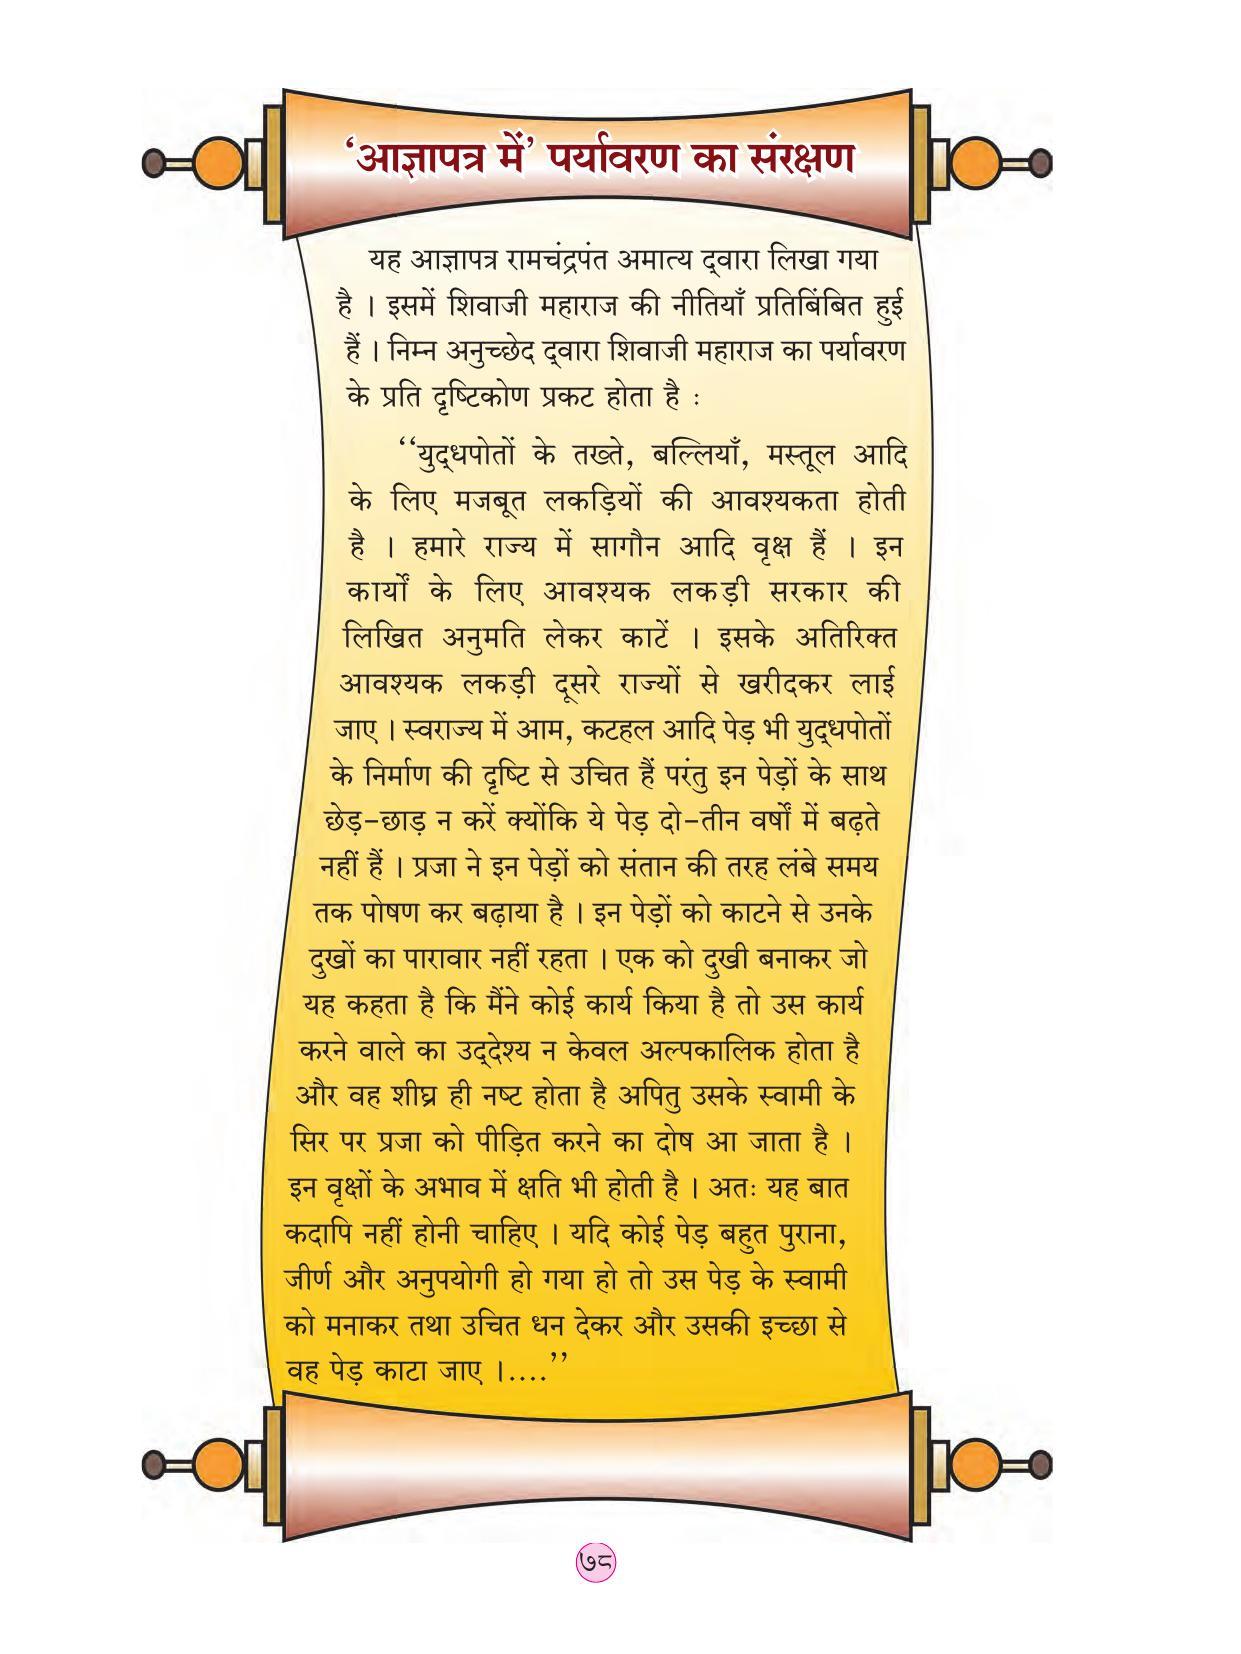 ‘आज्ञापत्र में’ पर्यावरण का संरक्षण
यह आज्ञापत्र रामचंद्रपंत अमात्य द्‌वारा लिखा गया
है । इसमें शिवाजी महाराज की नीतियाँ प्रतिबिंबित हुई
हैं । निम्न अनुच्छेद द्‌वारा शिवाजी महाराज का पर्यावरण
के प्रति दृष्टिकोण प्रकट होता है :
‘‘युद्‌धपोतों के तख्ते, बल्लियाँ, मस्तूल आदि
के लिए मजबूत लकड़ियों की आवश्यकता होती
है । हमारे राज्य में सागौन आदि वृक्ष हैं । इन
कार्यों के लिए आवश्यक लकड़ी सरकार की
लिखित अनुमति लेकर काटें । इसके अतिरिक्त
आवश्यक लकड़ी दूसरे राज्यों से खरीदकर लाई
जाए । स्वराज्य में आम, कटहल आदि पेड़ भी युद्‌धपोतों
के निर्माण की दृष्टि से उचित हैं परंतु इन पेड़ों के साथ
छेड़-छाड़ न करें क्योंकि ये पेड़ दो-तीन वर्षों में बढ़ते
नहीं हैं । प्रजा ने इन पेड़ों को संतान की तरह लंबे समय
तक पोषण कर बढ़ाया है । इन पेड़ों को काटने से उनके
दुखों का पारावार नहीं रहता । एक को दुखी बनाकर जो
यह कहता है कि मैंने कोई कार्य किया है तो उस कार्य
करने वाले का उद्‌देश्य न केवल अल्पकालिक होता है
और वह शीघ्र ही नष्ट होता है अपितु उसके स्वामी के
सिर पर प्रजा को पीड़ित करने का दोष आ जाता है ।
इन वृक्षों के अभाव में क्षति भी होती है । अतः यह बात
कदापि नहीं होनी चाहिए । यदि कोई पेड़ बहुत पुराना,
जीर्ण और अनुपयोगी हो गया हो तो उस पेड़ के स्वामी
को मनाकर तथा उचित धन देकर और उसकी इच्छा से
वह पेड़ काटा जाए ।....’’
७८